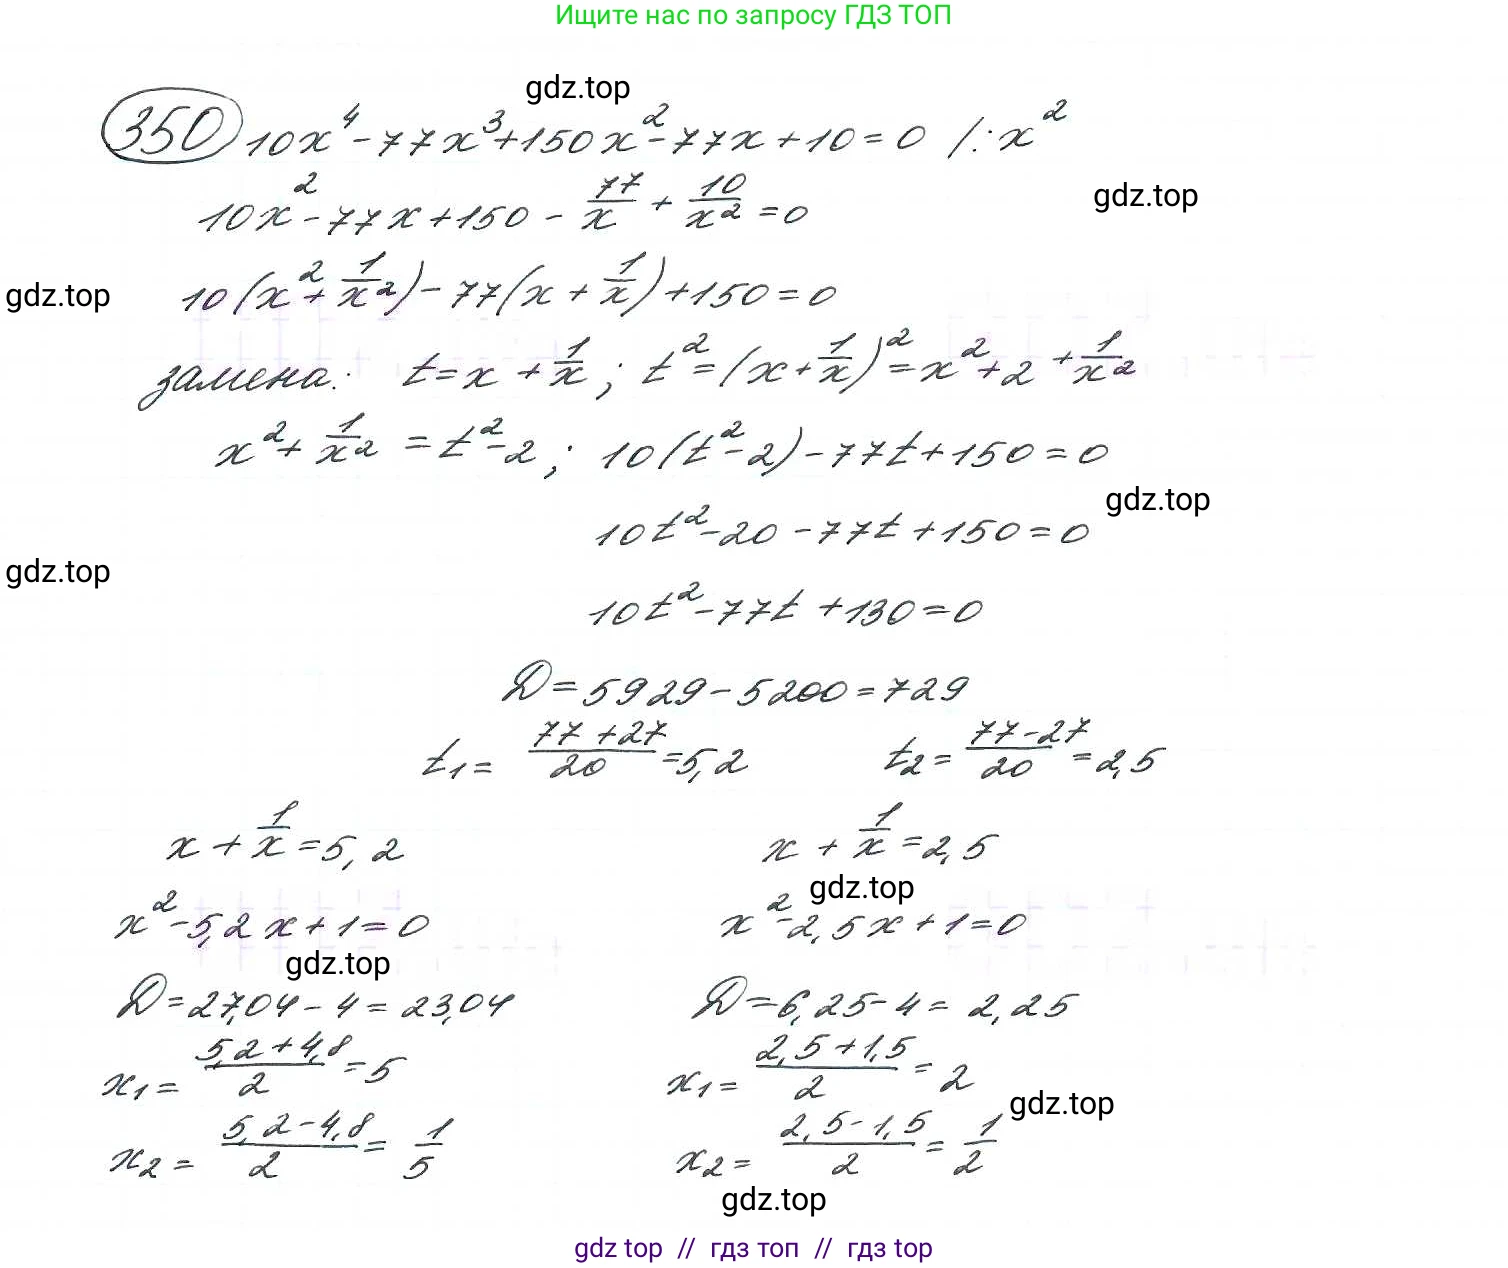 Ищите нас по запросу ГДЗ ТОП
gdz.top
350 10x⁴ - 77x³ + 150x² - 77x + 10 = 0 /: x²
10x² - 77x + 150 - 77/x + 10/x² = 0
gdz.top
10(x² + 1/x²) - 77(x + 1/x) + 150 = 0
gdz.top
замена: t = x + 1/x; t² = (x + 1/x)² = x² + 2 + 1/x²
x² + 1/x² = t² - 2; 10(t² - 2) - 77t + 150 = 0
gdz.top
10t² - 20 - 77t + 150 = 0
gdz.top
10t² - 77t + 130 = 0
D = 5929 - 5200 = 729
t₁ = (77 + 27)/20 = 5,2 t₂ = (77 - 27)/20 = 2,5
x + 1/x = 5,2 x + 1/x = 2,5
gdz.top
x² - 5,2x + 1 = 0 x² - 2,5x + 1 = 0
gdz.top
D = 27,04 - 4 = 23,04 D = 6,25 - 4 = 2,25
x₁ = (5,2 + 4,8)/2 = 5 x₁ = (2,5 + 1,5)/2 = 2
gdz.top
x₂ = (5,2 - 4,8)/2 = 1/5 x₂ = (2,5 - 1,5)/2 = 1/2
gdz.top
gdz top // гдз топ // гдз top